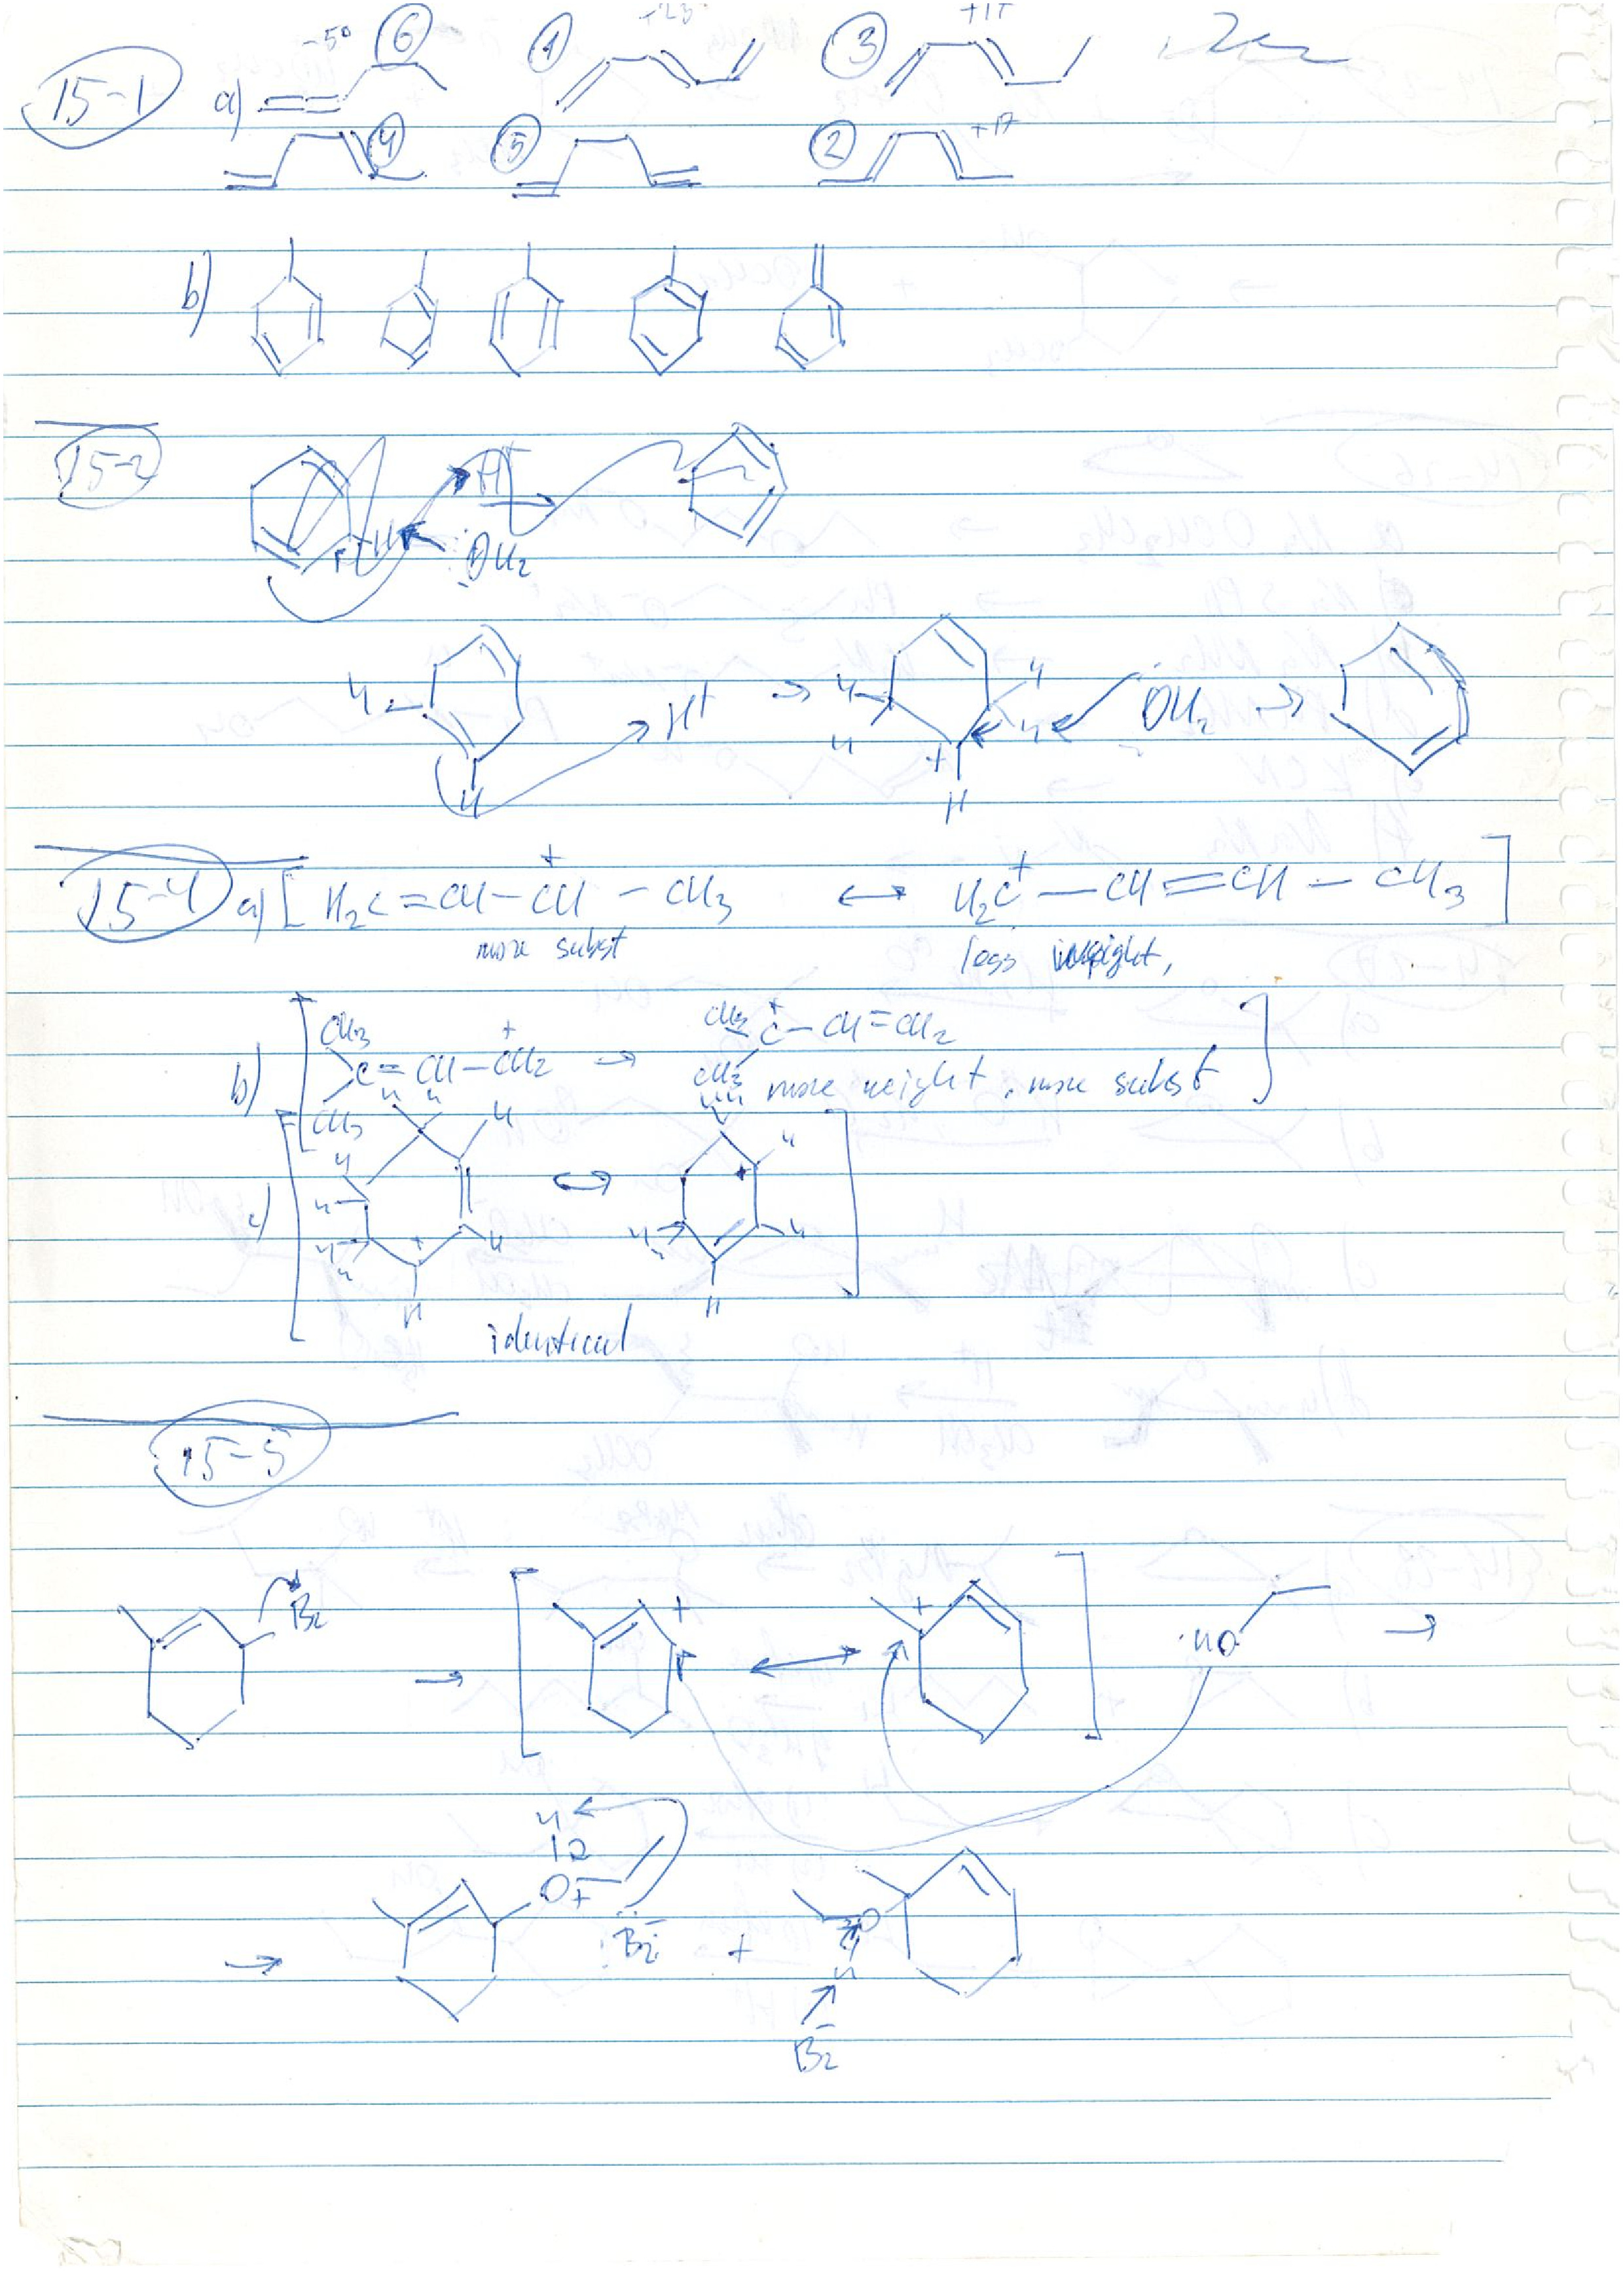 15-1 a) -50 6 1 +23 3 +17
4 5 2 +17
b)
15-2
H+
:OH2
H H+ → H H → OH2 →
H H H
+
H
15-4 a) [ H2C=CH-CH+-CH3 ↔ H2C+-CH=CH-CH3 ]
more subst less weight,
b) [ CH3 CH3 C=CH-CH2+ → CH3 CH3 C+-CH=CH2 ]
more weight, more subst
c) [ H H H H H H H H H + ↔ H H H H H H H + ]
identical
15-5
Br → [ + ↔ + ] HO →
H
→ O+ :Br:- + O H
Br-